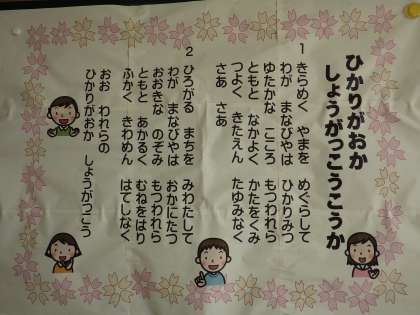 ひかりがおか
しょうがっこうこうか
1
きらめく やまを めぐらして
わが まなびやは ひかりみつ
ゆたかな こころ もつわれら
ともと なかよく かたをくみ
つよく きたえん たゆみなく
さあ さあ
2
ひろがる まちを みわたして
わが まなびやは おかにたつ
おおきな のぞみ もつわれら
ともと あかるく むねをはり
ふかく きわめん はてしなく
おお われらの
ひかりがおか しょうがっこう